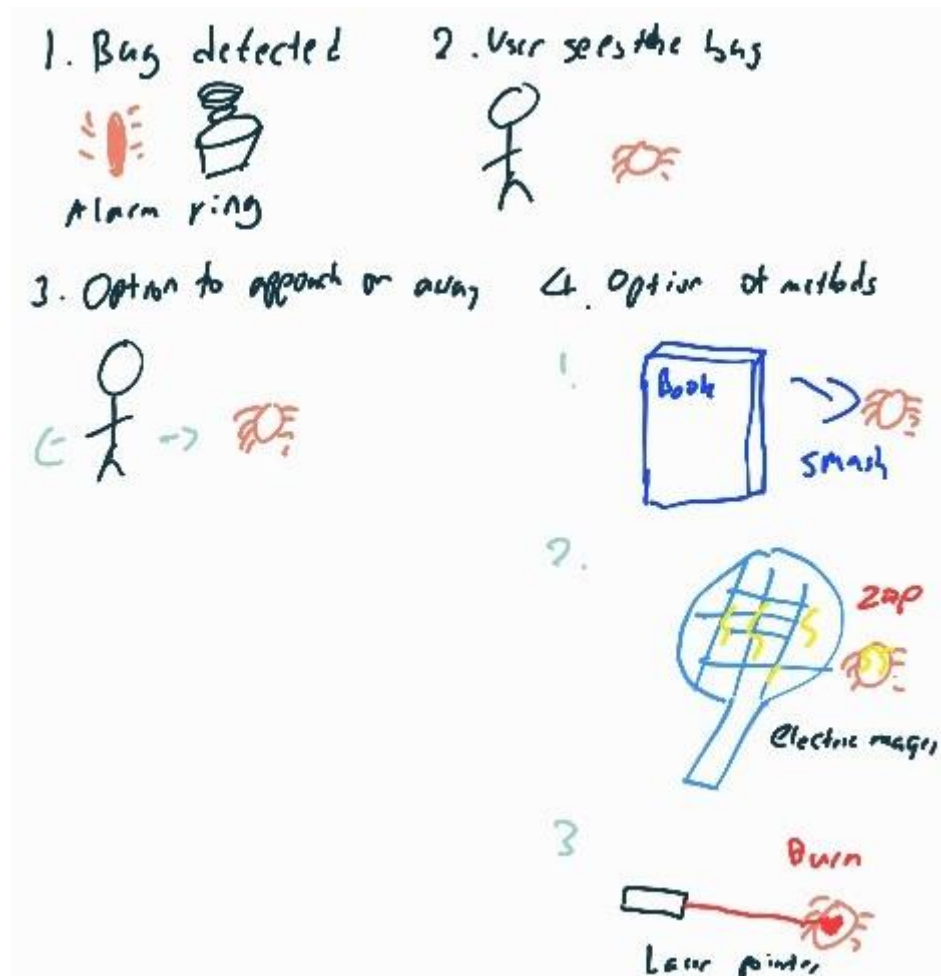 1. Bug detected
Alarm ring
2. User sees the bug
3. Option to appoach or away
4. Option of methods
1.
Book
smash
2.
zap
Electric
3
Burn
Laser pointer